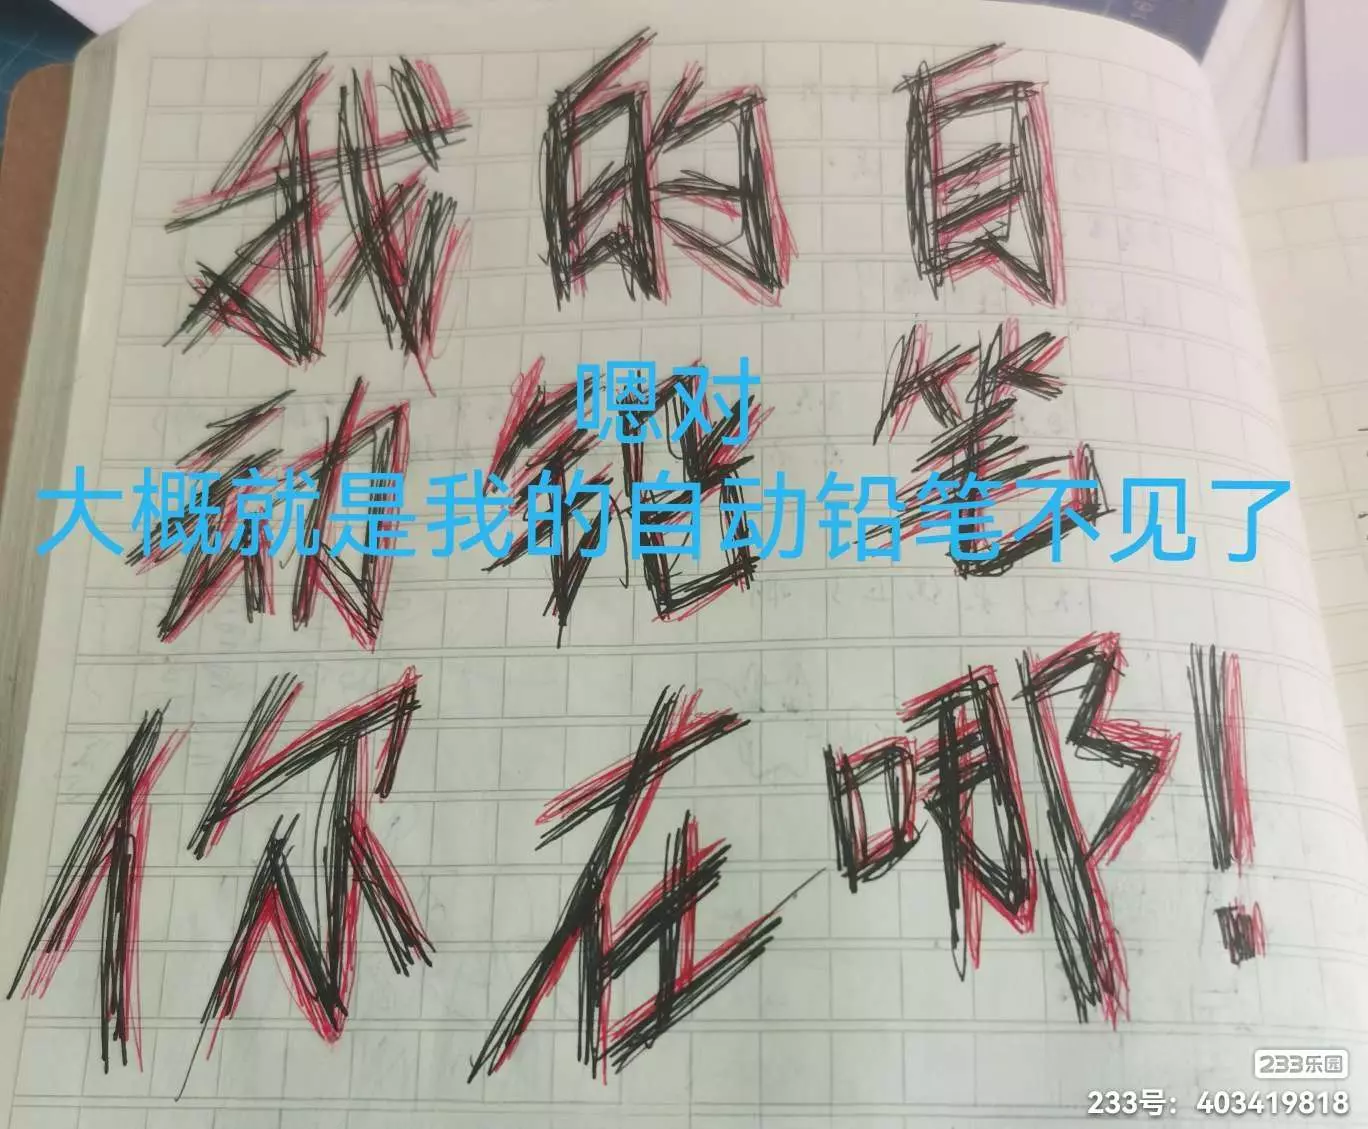 我的自
嗯对
动铅笔
大概就是我的自动铅笔不见了
你在哪!
233乐园
233号：403419818